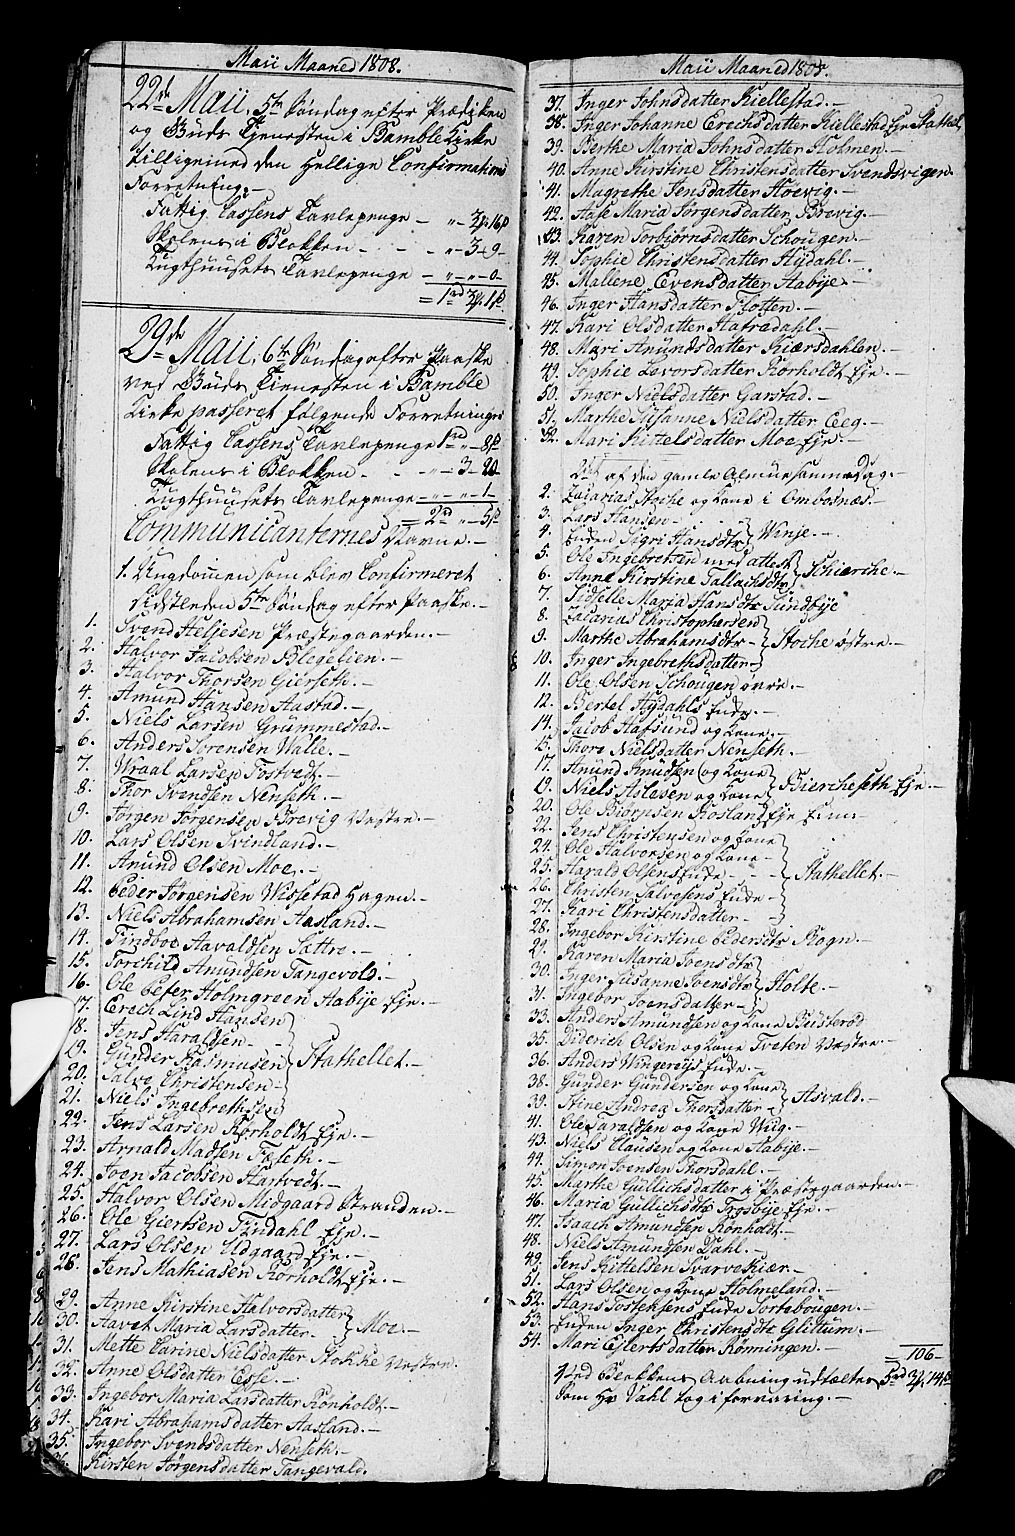 Maii Maaned 1808.
22de Maii, 5te Søndag efter Prædiken
og Guds Tienesten i Bamble Kirke
tilligemed den Hellige Confirmations
Forretning.-
Fattig Cassens Tavlepenge - " - 3 16
Skolens i Blokken - - " - 3 - 9 -
Tugthuusets Tavlepenge - " - " - 0 -
= 1rd 3 1
29de Maii, 6te Søndag efter Paaske
ved Guds Tienesten i Bamble
Kirke passeret følgende Forretninger
Fattig Cassens Tavlepenge 1rd " - 8
Skolens i Blokken - - " - 3 - 20
Tugthuusets Tavlepenge - " - " - 1 -
= 2rd " - 5
Communicanternes Navne.-
1. Ungdommen som blev Confirmeret
sidstleden 5te Søndag efter Paaske.-
1. Svend Heljesen Præstegaarden.-
2. Halvor Jacobsen Blegelien.-
3. Halvor Thorsen Gierseth.-
4. Amund Hansen Aastad.-
5. Niels Larsen Grummestad.-
6. Anders Sorensen Valle.-
7. Wraal Larsen Tostvedt.-
8. Thor Svendsen Nenseth.-
9. Jørgen Jørgensen Brevig Vestre.-
10. Lars Olsen Svindland.-
11. Anund Olsen Moe.-
12. Peder Jørgensen Wissestad Hagen.-
13. Niels Abrahamsen Aasland.-
14. Findboe Aavaldsen Sattre.-
15. Torchild Amundsen Tangevold.-
16. Ole Peter Holmgreen Aabÿe Eje.-
17. Erech Lind Hansen
18. Jens Haraldsen -
19. Gunder Rasmusen Stathellet.-
20. Salve Christensen -
21. Niels Ingebrethsen
22. Jens Larsen Rørholdt Eje.-
23. Arnald Madsen Fæseth.-
24. Joen Jacobsen Hartvedt.-
25. Halvor Olsen Midgaard Stranden.-
26. Ole Giertsen Findahl Eje.-
27. Lars Olsen Udgaard Eje.-
28. Jens Mathiasen Rørholdt Eje.-
29. Anne Kirstine Halvorsdatter
30. Aavet Maria Larsdatter. Moe.-
31. Mette Carine Nielsdatter Stokke Vestre.
32. Anne Olsdatter Esse.-
33. Ingebor Maria Larsdatter Rønholdt.-
34. Kari Abrahamsdatter Aasland.-
35. Ingebor Svendsdatter Nenseth.-
36. Kirsten Jørgensdatter Tangevald.
Maii Maaned 1808.
37. Inger Johnsdatter Kiellestad.-
38. Inger Johanne Erechsdatter Kiellestad Eje Stathel
39. Berthe Maria Johnsdatter Holmen.-
40. Anne Kirstine Christensdatter Svendsvigen.
41. Magrethe Jensdatter Hoevig.-
42. Aase Maria Jørgensdatter Brevig.-
43. Karen Torbiørnsdatter Schougen.-
44. Sophie Christensdatter Hydahl.-
45. Mallene Evensdatter Aabÿe.-
46. Inger Hansdatter Flotten.-
47. Kari Olsdatter Hafredahl.-
48. Mari Anundsdatter Kiærsdahlen.-
49. Sophie Levorsdatter Rorholdt Eje.-
50. Inger Nielsdatter Garstad.-
51. Marthe Susanne Nielsdatter Eeg.-
52. Mari Kittelsdatter Moe Eje.-
2det af den gamle Almue samme Dag.-
2. Zacarias Stoche og Kone i Ombasnæs.-
3. Lars Hansen -
4. Enken Sigri Hansdtr Winje.-
5. Ole Ingebretsen med attest
6. Anne Kirstine Tallachsdtr Schierche.-
7. Sidselle Maria Hansdtr Sundbÿe
8. Zacarias Christophersen
9. Marthe Abrahamsdtr Stoche østre.-
10. Inger Ingebrethsdatter
11. Ole Olsen Schougen øvre.-
12. Bertel Hydahls Enke.-
14. Jacob Hafsund og Kone.-
15. Thore Nielsdatter Nenseth.-
17. Anund Knudsen og Kone
19. Niels Aslesen og Kone Biercheseth Eje.-
20. Ole Biørnsen Rosland Eje
22. Jens Christensen og Kone
24. Ole Halvorsen og Kone -
25. Harald Olsens Enke - - Stathellet.-
26. Christen Salvesens Enke -
27. Kari Christensdatter -
28. Ingebor Kirstine Pedersdtr Rogn.-
29. Karen Maria Joensdtr
30. Inger Susanne Joensdtr Holte.-
31. Ingebor Joensdatter -
33. Anders Amundsen og Kone Busterød
35. Diderich Olsen og Kone Tveten Vestre.-
36. Anders Wingereÿs Enke.-
38. Gunder Gundersen og Kone
39. Stine Andrea Thorsdatter - Asvald.-
41. Ole Taraldsen og Kone Wiig.-
43. Niels Clausen og Kone Aabÿe.-
44. Simon Joensen Thorsdahl.-
45. Marthe Gullichsdatter i Præstegaarden.-
46. Maria Gullichsdtr Trosbÿe Eje.-
47. Isaach Amundsen Rønholt.-
48. Niels Amundsen Dahl.-
49. Jens Kittelsen Svarvekiær.-
51. Lars Olsen og Kone Holmeland.-
52. Hans Tostensens Enke Sortebougen.-
53. Enken Inger Christensdtr Glittum.-
54. Mari Ejlertsdatter Rønningen.-
= 106 -
Ved Blokkens Aabning udtaltes 5rd 3 14
som Hr Vahl tog i forvaring.-